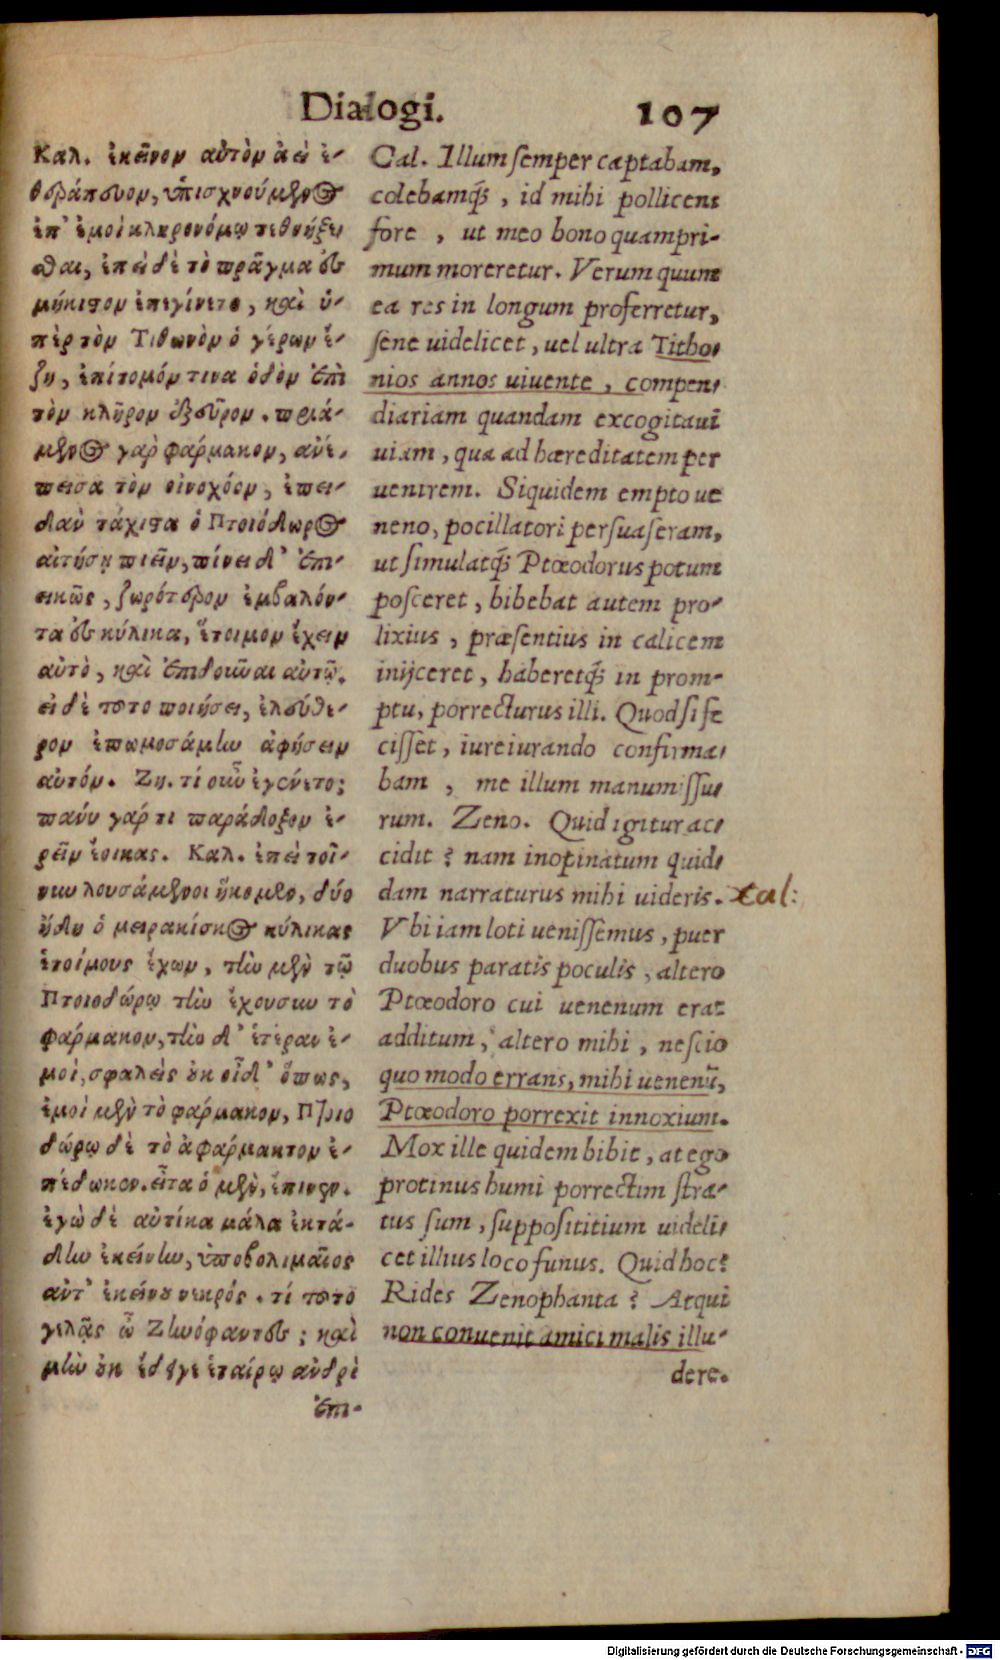 Dialogi. 107
Καλ. ἐκεῖνον αὐτὸν ἀεὶ ἐ-
θεράπευον, ὑπισχνούμενος
ἐπ' ἐμοὶ κληρονόμῳ τεθνήξε
σθαι, ἐπεὶ δὲ τὸ πρᾶγμα ἐς
μήκιστον ἐπεγίνετο, καὶ ὑ-
πὲρ τὸν Τιθωνὸν ὁ γέρων ἔ-
ζη, ἐπίτομόν τινα ὁδὸν ἐπὶ
τὸν κλῆρον ἐξεῦρον. πριά-
μενος γὰρ φάρμακον, ἀνέ-
πεισα τὸν οἰνοχόον, ἐπει-
δὰν τάχιστα ὁ Πτοιόδωρος
αἰτήσῃ πιεῖν, πίνει δ' ἐπι-
εικῶς, ζωρότερον ἐμβαλόν-
τα ἐς κύλικα, ἕτοιμον ἔχειν
αὐτὸ, καὶ ἐπιδοῦναι αὐτῷ.
εἰ δὲ τοῦτο ποιήσει, ἐλεύθε-
ρον ἐπωμοσάμην ἀφήσειν
αὐτόν. Ζη. τί οὖν ἐγένετο;
πάνυ γάρ τι παράδοξον ἐ-
ρεῖν ἔοικας. Καλ. ἐπεὶ τοί-
νυν λουσάμενοι ἥκομεν, δύο
ἤδη ὁ μειρακίσκος κύλικας
ἑτοίμους ἔχων, τὴν μὲν τῷ
Πτοιοδώρῳ τὴν ἔχουσαν τὸ
φάρμακον, τὴν δ' ἑτέραν ἐ-
μοὶ, σφαλεὶς οὐκ οἶδ' ὅπως,
ἐμοὶ μὲν τὸ φάρμακον, Πτοιο
δώρῳ δὲ τὸ ἀφάρμακτον ἐ-
πέδωκεν. εἶτα ὁ μὲν, ἔπινεν.
ἐγὼ δὲ αὐτίκα μάλα ἐκτά-
δην ἐκείμην, ὑποβολιμαῖος
ἀντ' ἐκείνου νεκρός. τί τοῦτο
γελᾷς ὦ Ζηνόφαντες; καὶ
μὴν οὐκ ἔδει γε ἑταίρῳ ἀνδρὶ
ἐπι-
Cal. Illum semper captabam,
colebamq́ꝫ, id mihi pollicens
fore, ut meo bono quampri-
mum moreretur. Verum quum
ea res in longum proferretur,
sene uidelicet, uel ultra Titho-
nios annos uiuente, compen-
diariam quandam excogitaui
uiam, qua ad hæreditatem per
uenirem. Siquidem empto ue
neno, pocillatori persuaseram,
ut simulatq́ꝫ Ptœodorus potum
posceret, bibebat autem pro-
lixius, præsentius in calicem
inijceret, haberetq́ꝫ in prom-
ptu, porrecturus illi. Quod si fe
cisset, iureiurando confirma-
bam, me illum manumissu-
rum. Zeno. Quid igitur ac-
cidit? nam inopinatum quid-
dam narraturus mihi uideris. Cal:
Vbi iam loti uenissemus, puer
duobus paratis poculis, altero
Ptœodoro cui uenenum erat
additum, altero mihi, nescio
quo modo errans, mihi uenenū,
Ptœodoro porrexit innoxium.
Mox ille quidem bibit, at ego
protinus humi porrectim stra-
tus sum, supposititium uideli-
cet illius loco funus. Quid hoc?
Rides Zenophanta? Atqui
non conuenit amici malis illu-
dere.
Digitalisierung gefördert durch die Deutsche Forschungsgemeinschaft - DFG